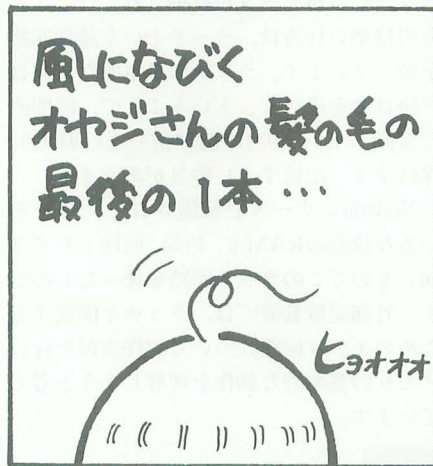 風になびく
オヤジさんの髪の毛の
最後の1本…
ヒョオオオ